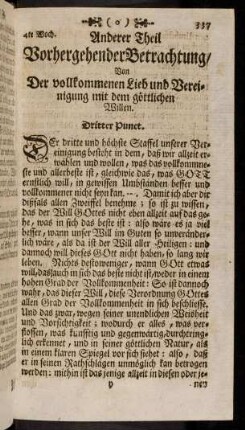 ( o ) 337
4te Woch. Anderer Theil
Vorhergehender Betrachtung/
Von
Der vollkommenen Lieb und Verei-
nigung mit dem göttlichen
Willen.
Dritter Punct.
DEr dritte und höchste Staffel unserer Ver-
einigung besteht in dem, daß wir allzeit er-
wählen und wollen, was das vollkommne-
ste und allerbeste ist, gleichwie das, was GOTT
ernstlich will, in gewissen Umständen besser und
vollkommener nicht seyn kan. Damit ich aber dir
dißfals allen Zweiffel benehme: so ist zu wissen,
das der Will GOttes nicht eben allzeit auf das ge-
he, was in sich das beste ist: also wäre es ja viel
besser, wann unser Will im Guten so unveränder-
lich wäre, als da ist der Will aller Heiligen: und
dannoch will dieses GOtt nicht haben, so lang wir
leben. Nichts destoweniger, wann GOtt etwas
will, das auch in sich das beste nicht ist, weder in einem
hohen Grad der Vollkommenheit: So ist dannoch
wahr, das dieser Will, diese Verordnung GOttes
allen Grad der Vollkommenheit in sich beschliesse.
Und das zwar, wegen seiner unendlichen Weisheit
und Vorsichtigkeit; wodurch er alles, was ver-
flossen, was künfftig und gegenwärtig, durchtring-
lich erkennet, und in seiner göttlichen Natur, als
in einem klaren Spiegel vor sich siehet: also, daß
er in seinen Rathschlägen unmöglich kan betrogen
werden: mithin ist das jenige allzeit in diesen oder je-